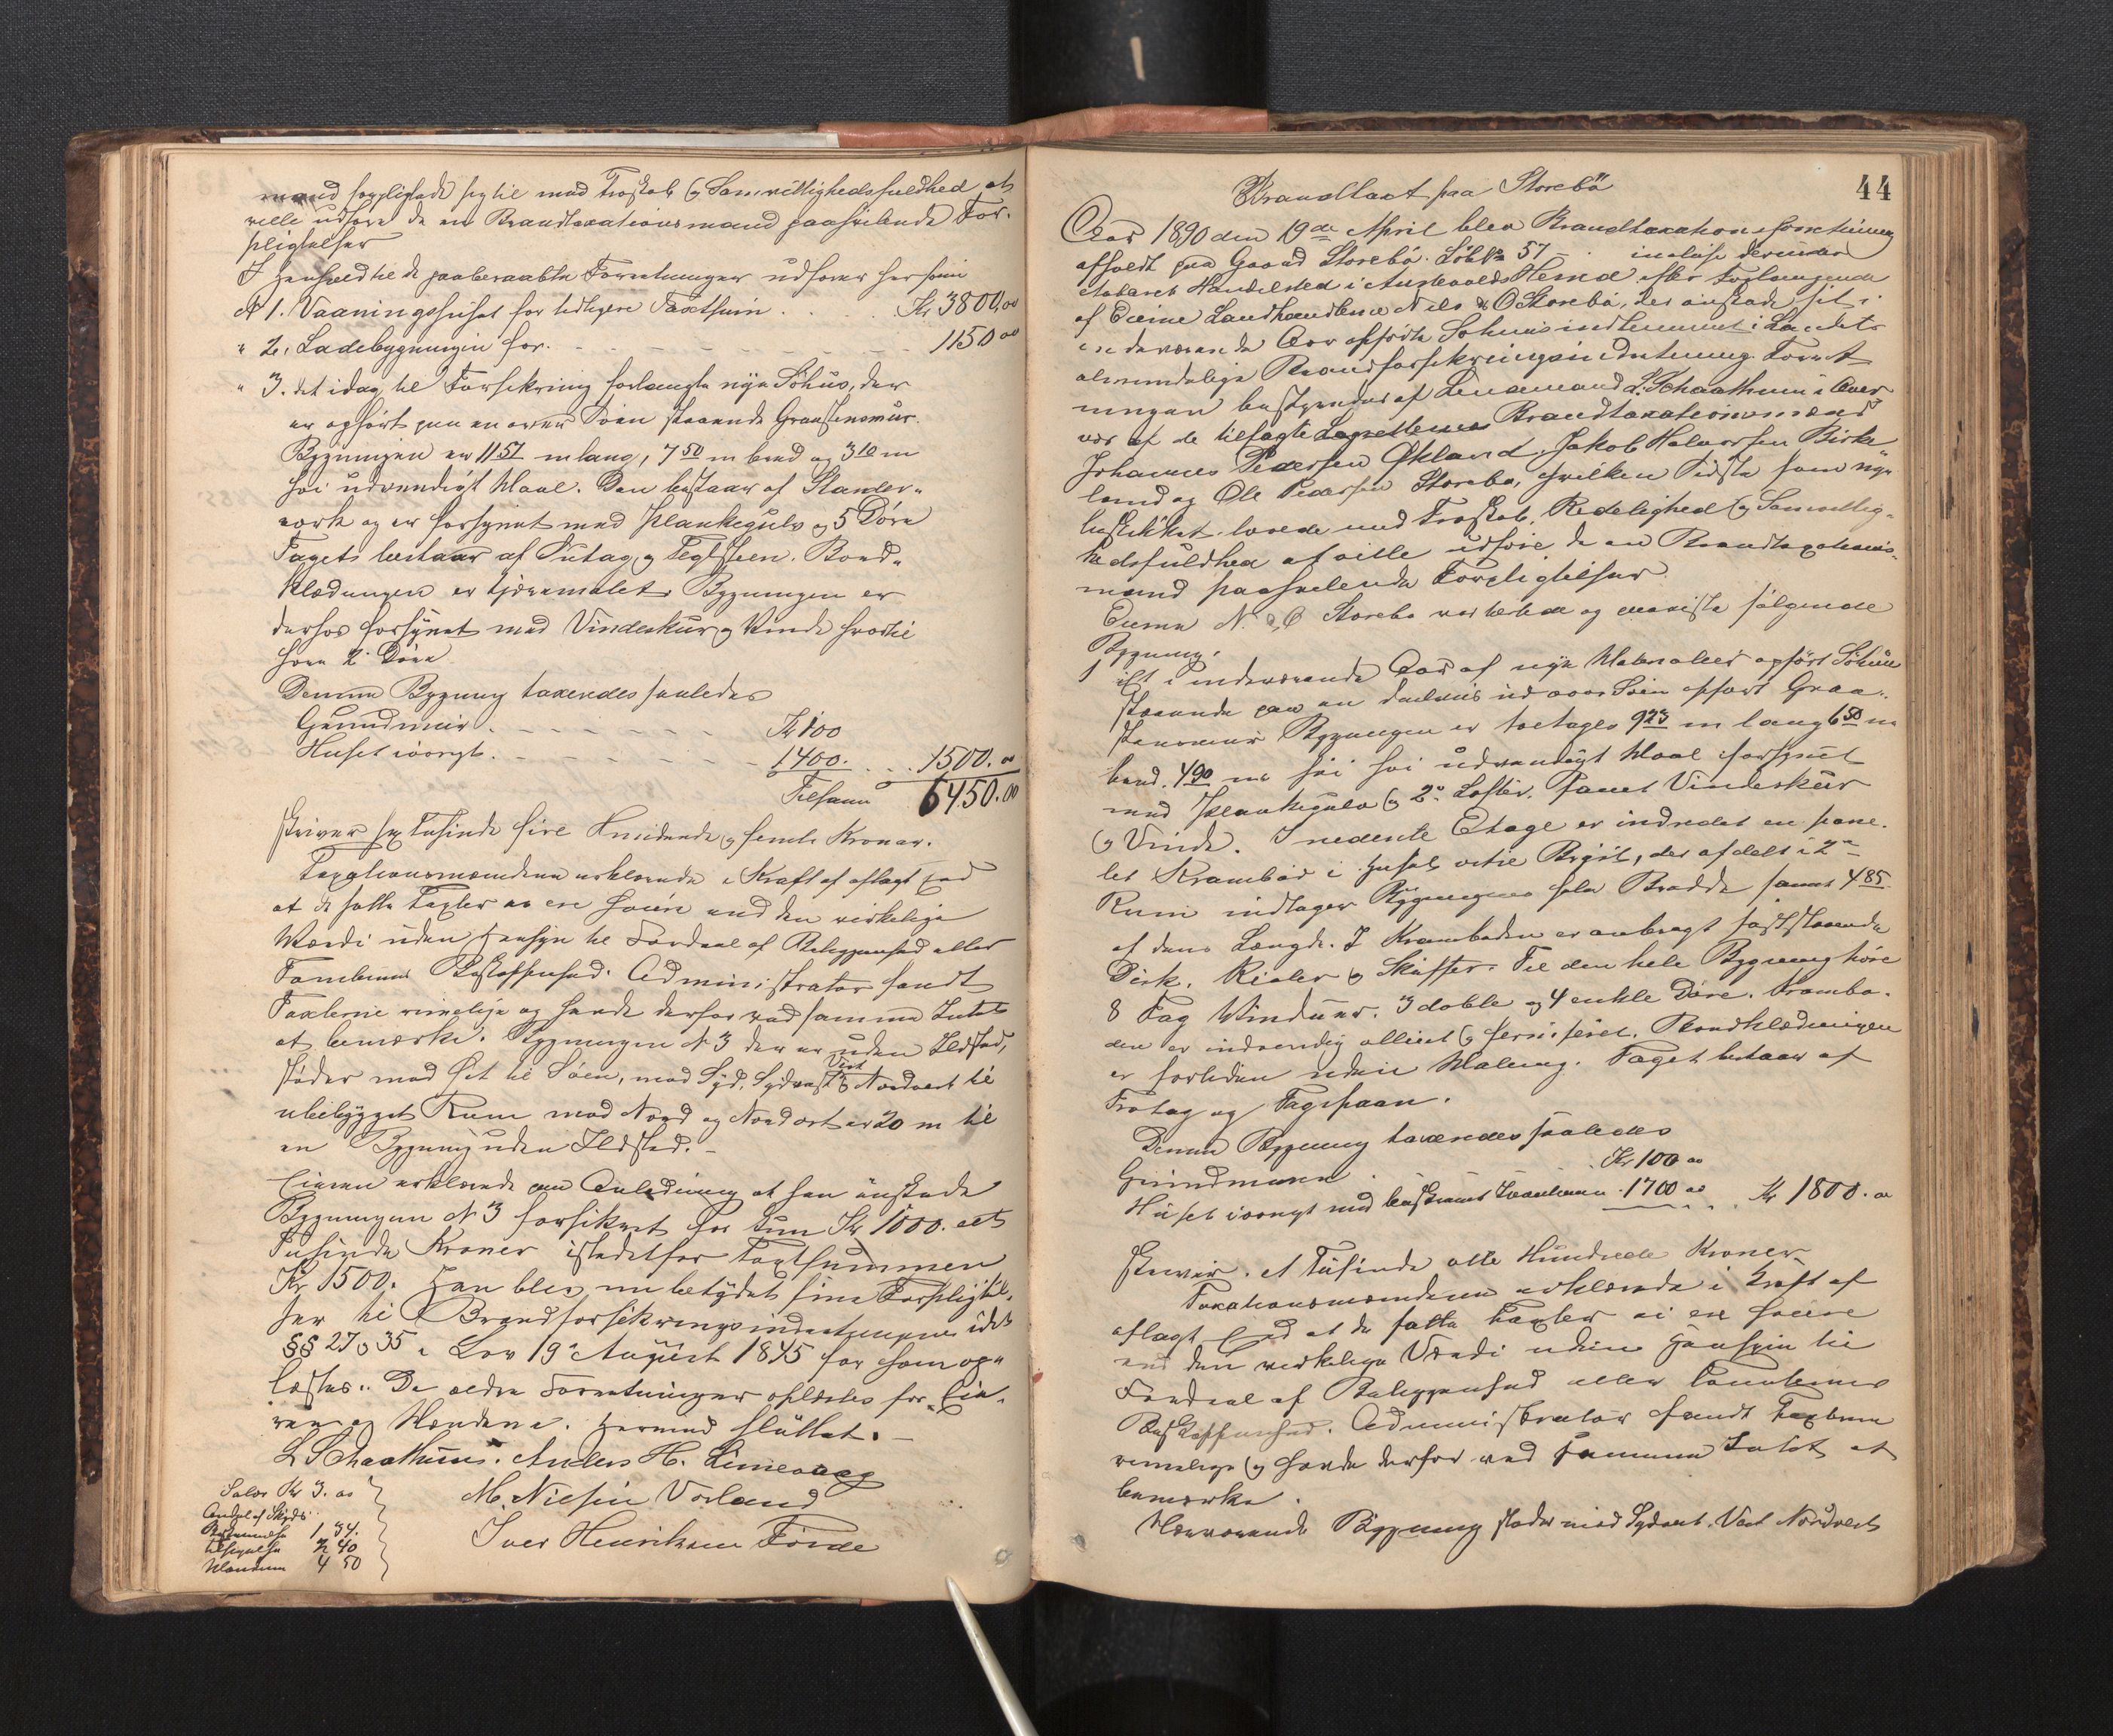 mand forpligtede sig til med Troskab og Samvittighedsfuldhed at
ville udføre de en Brandtaxationsmand paahvilende For-
pligtelser
I Henhold til de paaberaabte Forretninger udføres her som
№ 1. Vaaningshuset for tidligere Taxtsum . . . Kr 3800,00
" 2. Ladebygningen for. 1150 00
" 3. det idag til Forsikring forlangte nye Søhus, der
er opført paa en over Søen staaende Graastensmur.
Bygningen er 11 57 m lang, 7 50 m bred og 3 10 m
høi udvendigt Maal. Den bestaar af Stander-
værk og er forsynet med Plankegulv og 5 Døre
Taget bestaar af Sutag og Teglsteen. Bord-
klædningen er tjæremalet. Bygningen er
derhos forsynet med Vindeskur og Vinde hvortil
hører 2 Døre
Denne Bygning taxeredes saaledes
Grundmur. Kr 100
Huset iøvrigt. 1400. . . 1500. 00
Tilsam 6450.00
skriver sex Tusinde fire Hundrede og femti Kroner.
Taxationsmændene erklærede i Kraft af aflagt Eed
at de satte Taxter ei ere høiere end den virkelige
Værdi uden Hensyn til Fordeel af Beliggenhed eller
Tomternes Beskaffenhed. Administrator fandt
Taxterne rimelige og havde derfor ved samme Intet
at bemærke. Bygningen № 3 der er uden Ildsted,
støder mod Øst til Søen, mod Syd, Sydvest Vest og Nordvest til
ubebygget Rum mod Nord og Nordost er 20 m til
en Bygning uden Ildsted. –
Eieren erklærede paa Anledning at han ønskede
Bygningen № 3 forsikret for kun Kr 1000. eet
Tusinde Kroner istedetfor Taxtsummen
Kr 1500. Han blev nu betydet sine Forpligtel-
ser til Brandforsikringsindretningen idet
§§ 27 og 35 i Lov 19 August 1845 for ham op-
læstes. De ældre Forretninger oplæstes for Eie-
ren og Mændene. Hermed sluttet. –
L Schaathun. Anders H. Limevaag
M. Nielsen Vorland
Iver Henriksen Förde
Salær Kr 3. 00
Andel af Skyds
1 34.
Tilsigelse 2 40
Mændene 4 50
44
Brandtaxt paa Storebö
Aar 1890 den 19de April blev Brandtaxationsforretning
afholdt paa Gaard Storebø. Løbe № 57 derunder
Handelssted i Austevolds Herred efter Forlangende
af Eierne Landhandlerne Nils & O Storebø, der ønskede sit i
indeværende Aar opførte Søhus indlemmet i Landets
almindelige Brandforsikringsindretning. Forret-
ningen bestyredes af Lensmand L. Schaathun i Over-
vær af de tilsagte Brandtaxationsmænd
Johannes Pedersen Økland, Jakob Halvorsen Birke-
land og Ole Pedersen Storebø, hvilken Sidste som nye
beskikket lovede med Troskab, Redelighed og Samvittig-
hedsfuldhed at ville udføre de en Brandtaxations-
mand paahvilende Forpligtelser.
Eierne N. & O Storebø var tilstede og anviste følgende
Bygning:
1 Et i indeværende Aar af nye Materialier opført Søhus
staaende paa en deelvis ud over Søen opført Graa-
stensmur Bygningen er toetages 9 23 m lang 6 50 m
bred. 4 90 m høi udvendigt Maal forsynet
med Plankegulv og 2 Lofter. samt Vindeskur
og Vinde. I nederste Etage er indredet en pane-
let Krambod i Huset, der afdelt i 2
Rum indtager Bygningens hele Bredde samt 4 85
af dens Længde. I Kramboden er anbragt faststaaende
Disk, Reoler og Skuffer. Til den hele Bygning höre
8 Fag Vinduer. 3 doble og 4 enkle Döre. Krambo-
den er indvendig olliet og ferniseret. Bordklædningen
er forløden uden Maling. Taget bestaar af
Trotag og Tagspaan.
Denne Bygning taxeredes saaledes
Grundmuren . Kr 100 00
Huset iøvrigt med 1700 00 Kr 1800. 00
skriver. et Tusinde otte Hundrede Kroner
Taxationsmændene erklærede i Kraft af
aflagt Eed at de satte Taxter ei ere høiere
end den virkelige Værdi uden Hensyn til
Fordeel af Beliggenhed eller Tomternes
Beskaffenhed. Administrator fandt Taxterne
rimelige og havde derfor ved samme Intet at
bemærke.
Nærværende Bygning støder mod Sydvest. Vest Nordvest